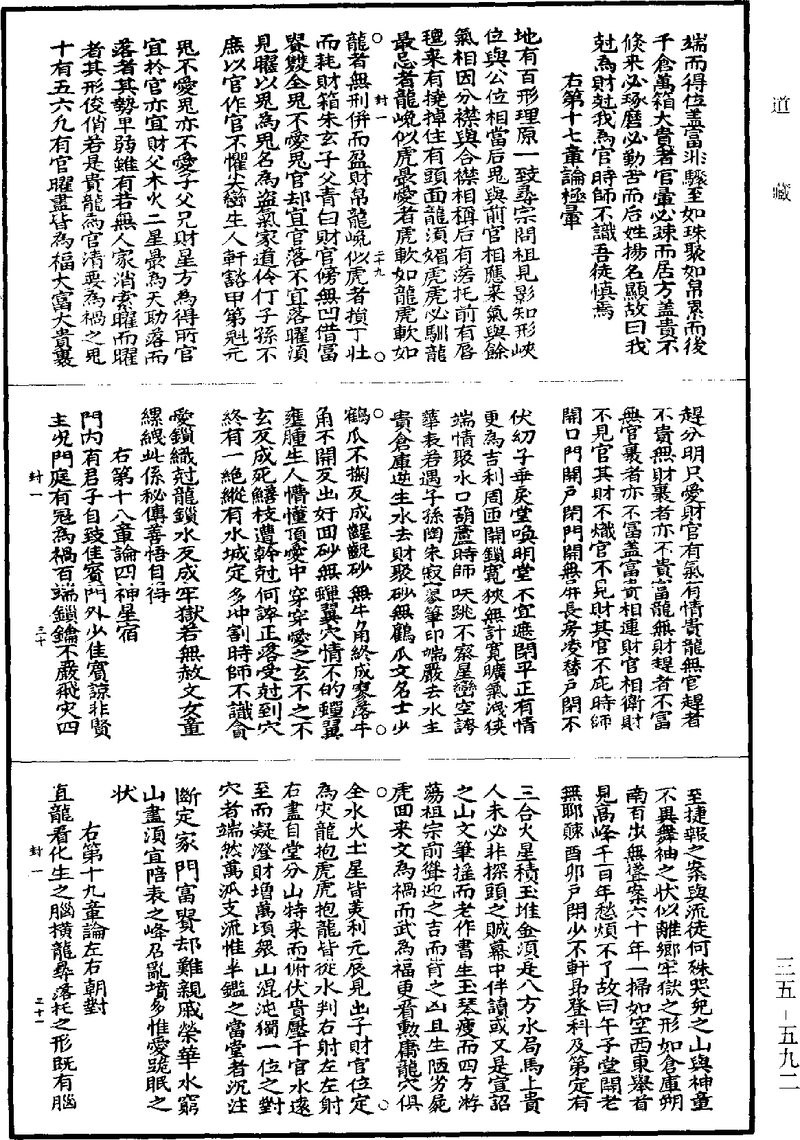 道藏
端而得位盖富非驟至如珠聚如帛累而後
千倉萬箱大貴者官暈必疎而居方盖貴不
倏来必琢磨必勤苦而后姓揚名顯故曰我
尅為財尅我為官時師不識吾徒慎焉
右第十七章論極暈
地有百形理原一致尋宗問祖見影知形峽
位與公位相當后鬼與前官相應来氣與餘
氣相因分襟與合襟相稱后有落托前有唇
氊来有撓掉住有頭面龍須媚虎虎必馴龍
最忌者龍巉似虎最愛者虎軟如龍虎軟如
龍者無刑併而盈財帛龍巉似虎者損丁壮
而耗財箱朱玄子父青白財官傍無凹借富
贤雙全鬼不愛鬼官却宜官落不宜落曜須
見曜以鬼為鬼名為盗氣家道伶仃子孫不
庶以官作官不懼尖巒生人軒豁甲第魁元
鬼不愛鬼亦不愛子父兄財星方為得所官
宜扵官亦宜財父木火二星最為天助落而
落者其勢卑弱雖有若無人家消索曜而曜
者其形俊俏若是貴龍為官清要為禍之鬼
十有五六九有官曜盡皆為福大富大貴裹
封一
二十九
趕分明只愛財官有氣有情貴龍無官趕者
不貴無財裹者亦不貴富龍無財趕者不富
無官裹者亦不富盖富貴相連財官相衛財
不見官其財不熾官不見財其官不庇時師
開口門開戶閉門開無屏長房凌替戶閉不
伏幼子垂戾堂喚明堂不宜遮閉平正有情
更為吉利周匝開鎖寬狹無計寬曠氣洩狹
端情聚水口葫蘆時師㗛跳不察星巒空誇
華表若遇子孫陶朱寂寥筆印端嚴去水主
貴倉庫逆生水去財聚砂無鶴瓜文名士少
鶴瓜不掬反成齷齪砂無牛角終成寥落牛
角不開反出奸回砂無蟬翼穴情不的蟬翼
壅腫生人懵懂頂愛中穿穿愛之玄不之不
玄反成死鱔枝遭幹尅何誇正落受尅到穴
終有一絶縱有水城定多冲割時師不識貪
愛鎖織尅龍鎖水反成牢獄若無赦文女童
縲絏此係秘傳善悟自得
右第十八章論四神星宿
門内有君子自致佳賓門外少佳賓諒非賢
主咒門庭有冦為禍百端鎖鑰不嚴飛灾四
封一
三十
至捷報之案與流徒何殊哭兒之山與神童
不異舞袖之状似離鄉牢獄之形如倉庫朔
南有出無導案六十年一掃如空西東舉首
見高峰千百年愁煩不了故曰午子堂闊老
無耶酥酉卯戶閉少不軒昂登科及第定有
三合火星積玉堆金須是八方水局馬上貴
人未必非探頭之賊幕中伴讀或又是宣詔
之山文筆揺而老作書生玉琴瘦而四方游
蕩祖宗前聳迎之吉而背之凶且生陋劣毙
虎回来文為禍而武為福更看勳庸龍穴俱
全水火土星皆美利元辰見出子財官位定
為灾龍抱虎虎抱龍皆從水判右射左左射
右盡自堂分山特来而俯伏貴壓千官水遠
至而凝澄財增萬項衆山混沌獨一位之對
穴者端然萬派支流惟半鑑之當堂者沉注
斷定家門富贤却難親戚榮華水窮
山盡須宜陪表之峰召亂墳多惟愛跪眠之
状
右第十九章論左右朝對
直龍看化生之腦横龍尋落托之形既有腦
封一
三十一
三五－五九二